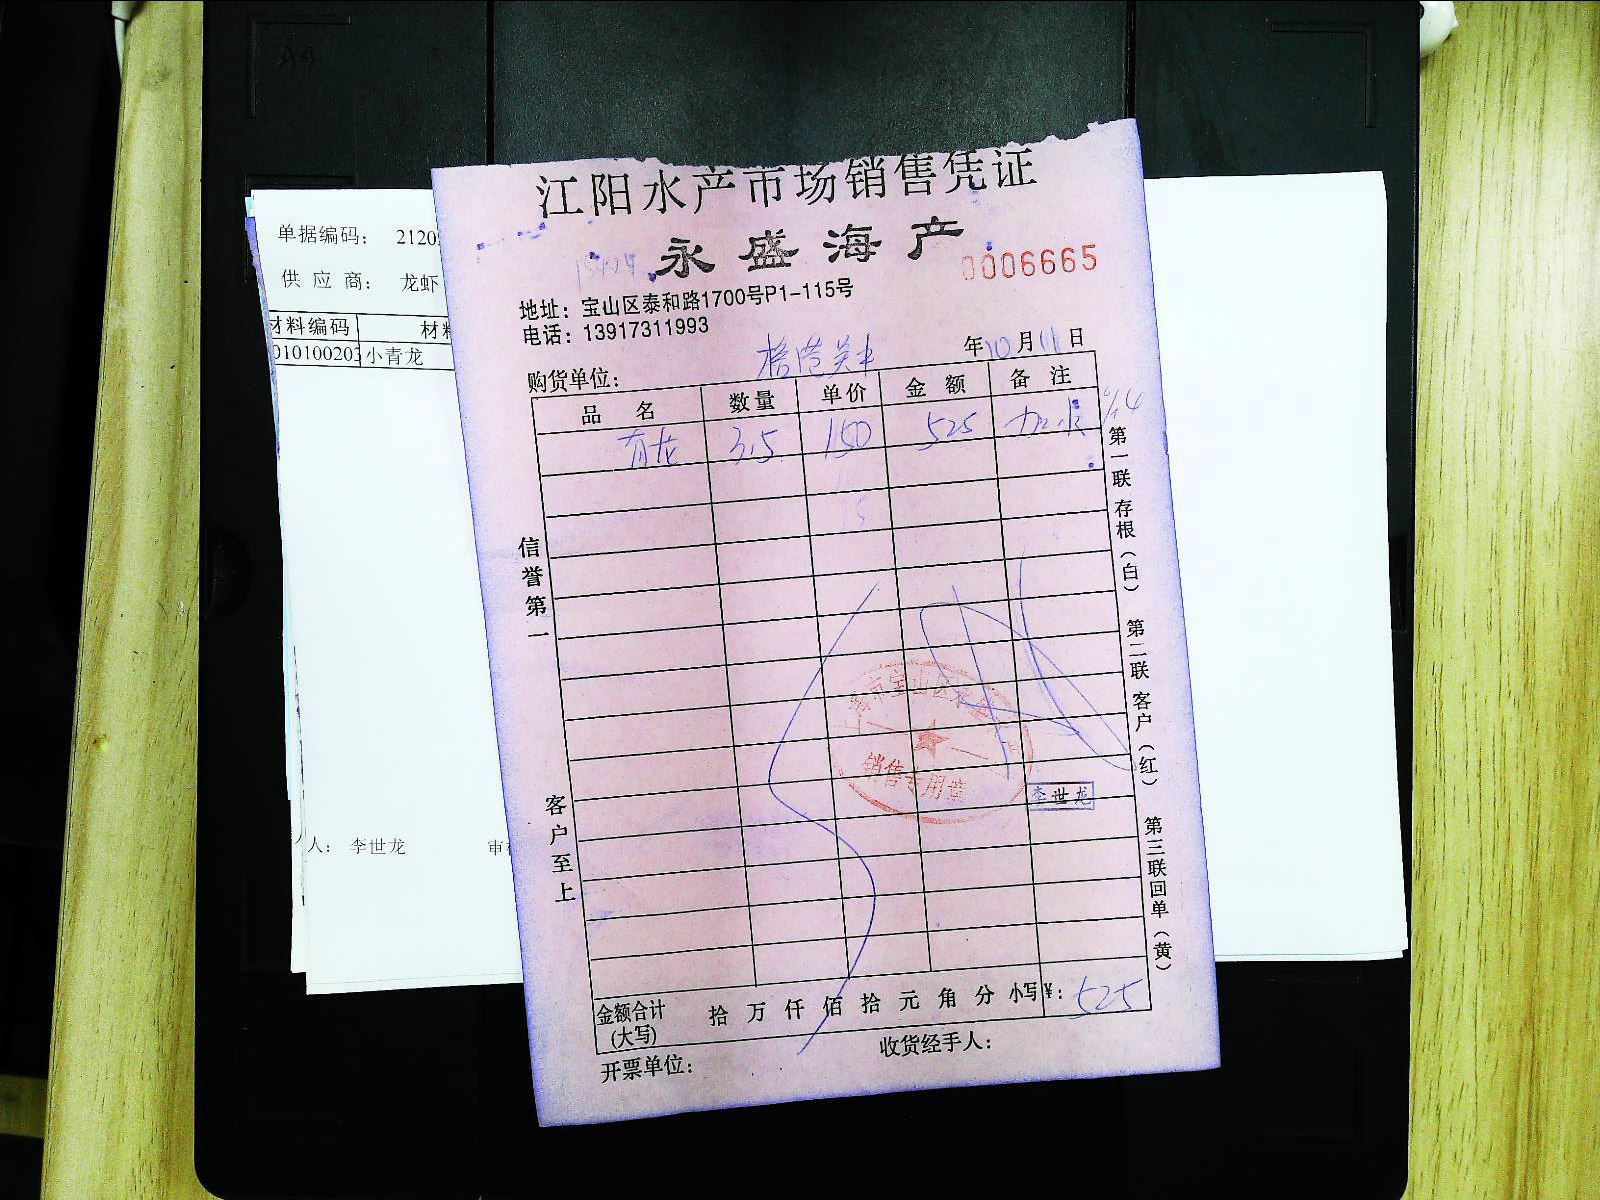 江阳水产市场销售凭证
永盛海产
0006665
地址：宝山区泰和路1700号P1-115号
电话：13917311993
购货单位：
年10月11日
品名 数量 单价 金额 备注
青龙 3.5 150 525 加水
信誉第一
客户至上
第一联存根（白） 第二联客户（红） 第三联回单（黄）
销售专用章
李世龙
金额合计(大写) 拾 万 仟 佰 拾 元 角 分 小写¥：525
开票单位：
收货经手人：
单据编码： 2120
供应商： 龙虾
材料编码 材料
010100203 小青龙
人： 李世龙
审
A4